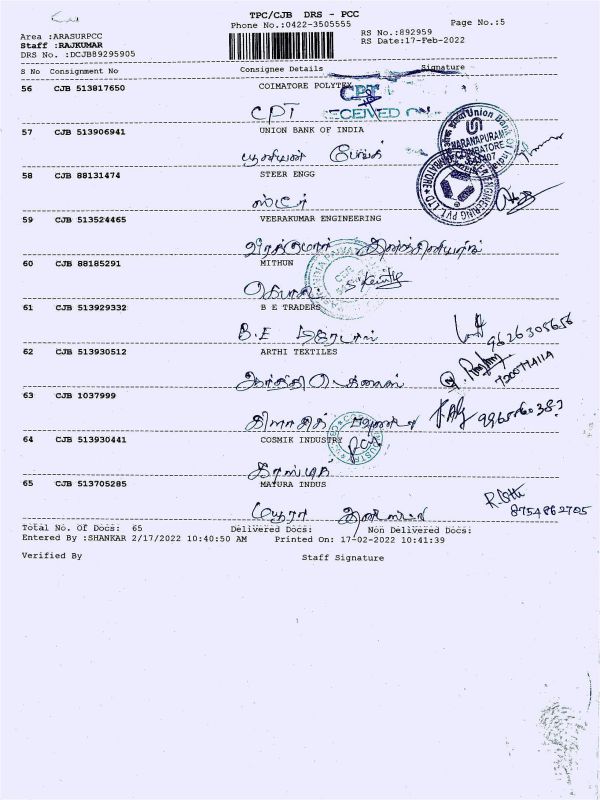 TPC/CJB DRS - PCC
Phone No.:0422-3505555
Page No.:5
Area :ARASURPCC
RS No.:892959
Staff :RAJKUMAR
RS Date:17-Feb-2022
DRS No. :DCJB89295905
S No Consignment No Consignee Details Signature
56 CJB 513817650 COIMATORE POLYTEX
CPT
CPT RECEIVED
57 CJB 513906941 UNION BANK OF INDIA
யூனியன் பேங்க்
Union Bank of India
58 CJB 88131474 STEER ENGG
ஸ்டீர்
59 CJB 513524465 VEERAKUMAR ENGINEERING
வீரக்குமார் இன்ஜினியரிங்
60 CJB 88185291 MITHUN
61 CJB 513929332 B E TRADERS
B.E டிரேடர்ஸ் 9626305656
62 CJB 513930512 ARTHI TEXTILES
ஆர்த்தி டெக்ஸ்டைல்ஸ்
63 CJB 1037999
64 CJB 513930441 COSMIK INDUSTRY
காஸ்மிக்
65 CJB 513705285 MAYURA INDUS
மயூரா 8754862705
Total No. Of Docs: 65 Delivered Docs: Non Delivered Docs:
Entered By :SHANKAR 2/17/2022 10:40:50 AM Printed On: 17-02-2022 10:41:39
Verified By Staff Signature